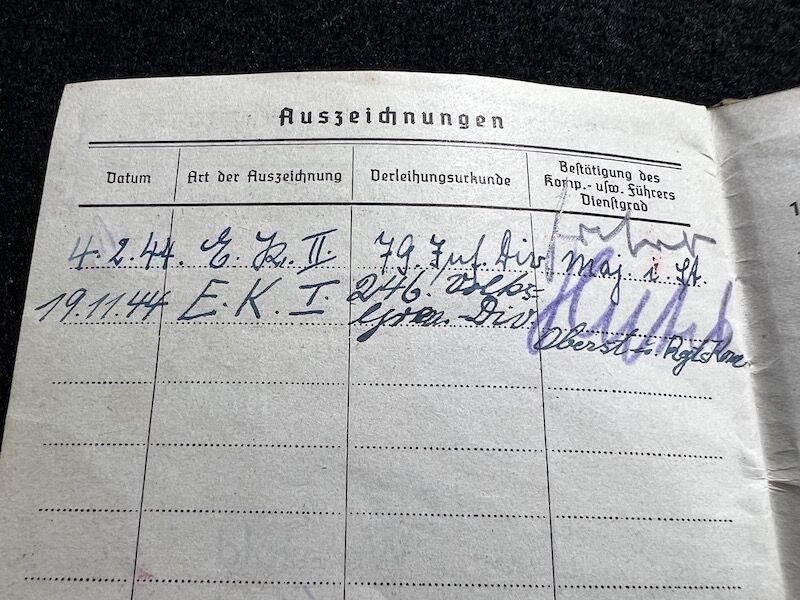 Auszeichnungen
Datum
Art der Auszeichnung
Verleihungsurkunde
Bestätigung des
Komp.- usw. Führers
Dienstgrad
4.2.44. E. K. II 79. Inf. Div. Maj. i. St.
19.11.44 E. K. I. 246. Volks-
Gren. Div.
Oberst u. Rgts. Kom.